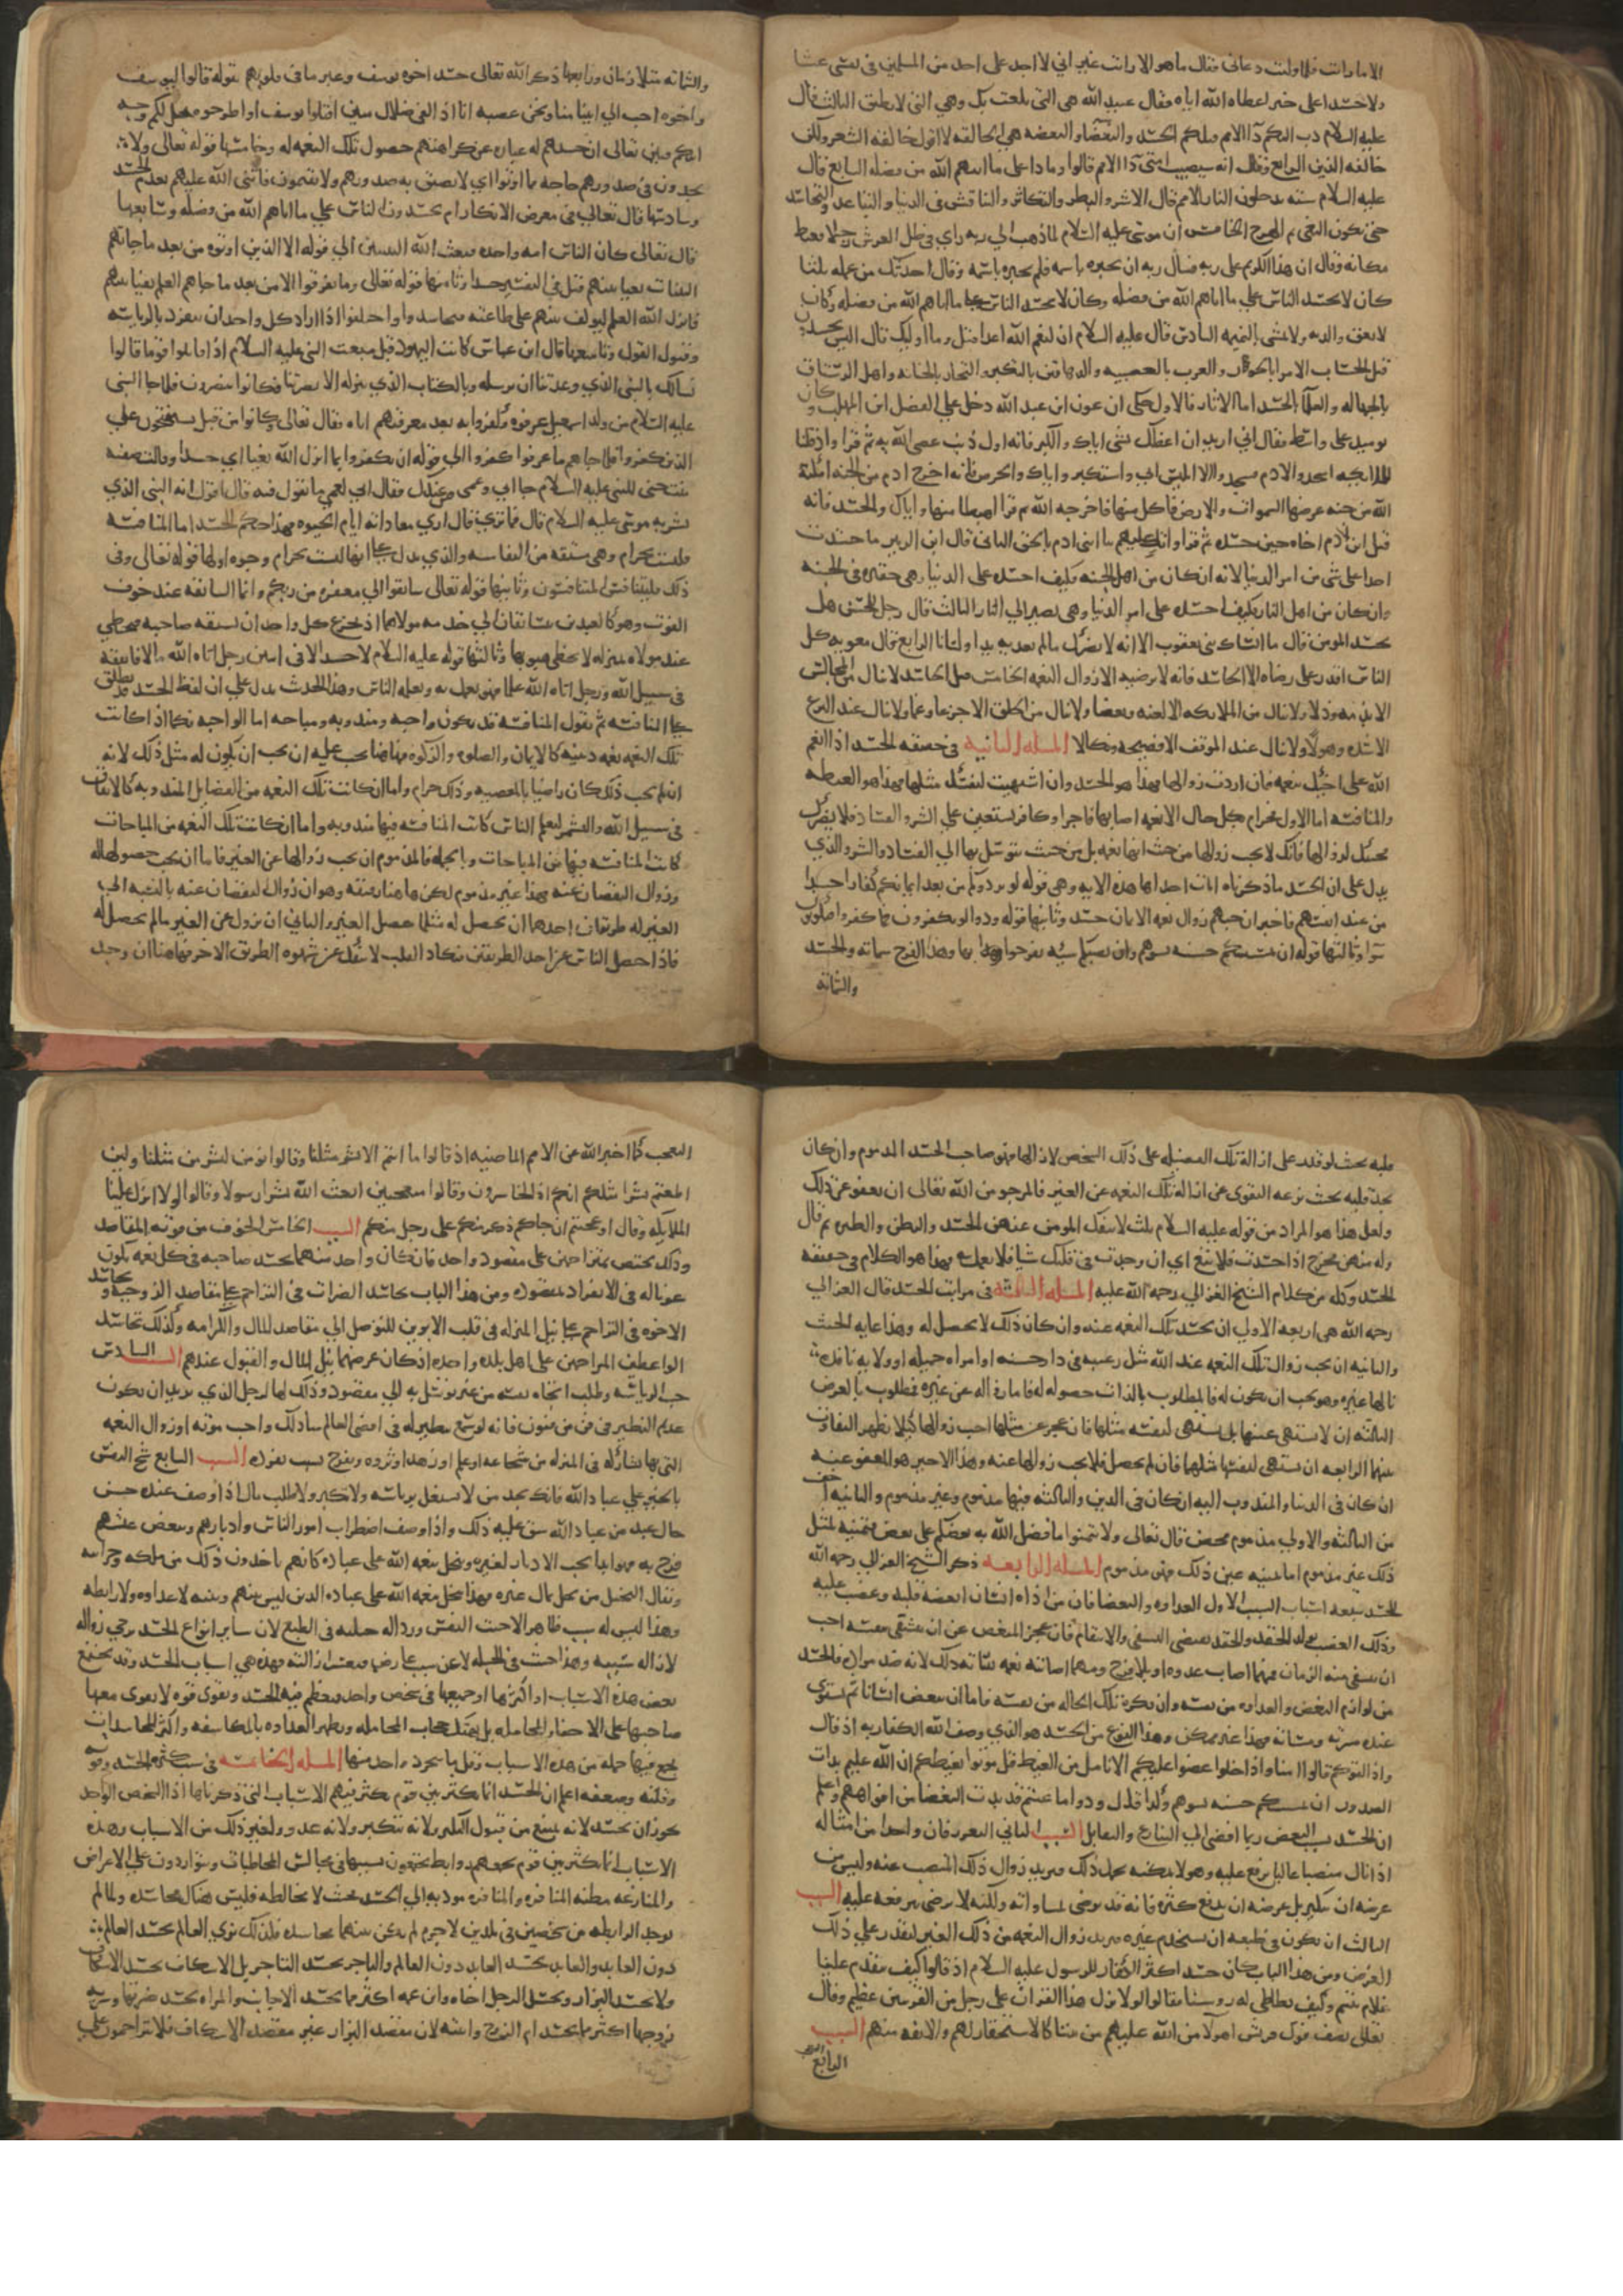 الامارات فلما ولت دعاني فقال ما هو الا رات غير اني لا اجد على احد من المسلمين في نفسي غشا
ولا حسدا على خير اعطاه الله اياه فقال عبد الله هي التي بلغت بك وهي التي لا نطيق الثالث قال
عليه السلام دب اليكم دا الامم قبلكم الحسد والبغضا والبغضه هي الحالقه لا اقول حالقه الشعر ولكن
حالقه الدين الرابع وقال انه سيصيب امتي دا الامم قالوا وما دا على ما اتيهم الله من فضله السابع قال
عليه السلام سته يدخلون النار الامم قال الاشر والبطر والتكاثر والتنافس في الدنيا والتباعد والتحاسد
حتى يكون البغي ثم الهرج الخامس ان موسى عليه السلام لما ذهب الي ربه راي في ظل العرش رجلا يغبط
مكانه وقال ان هذا الكريم على ربه فسال ربه ان يخبره باسمه فلم يخبره باسمه وقال احدثك من عمله ثلثا
كان لا يحسد الناس علي ما اتاهم الله من فضله وكان لا يحسد الناس على ما اتاهم الله من فضله وكان
لا يعق والديه ولا يمشي بالنميمه السادس قال عليه السلام ان لنعم الله اعدا قيل وما اوليك قال الذين يحسدون
قبل الحساب الامرا بالجور والعرب بالعصبيه والدهاقين بالتكبر والتجار بالخيانه واهل الرستاق
بالجهاله والعلما بالحسد اما الاثار فالاول حكى ان عون ابن عبد الله دخل علي الفضل ابن المهلب وكان
يوميد على واسط فقال اني اريد ان اعظك بشي اياك والكبر فانه اول ذنب عصي الله به ثم قرا واذ قلنا
للملايكه اسجدوا لادم فسجدوا الا ابليس ابي واستكبر واياك والحرص فانه اخرج ادم من الجنه امكنه
الله من جنه عرضها السموات والارض فاكل منها فاخرجه الله ثم قرا اهبطا منها واياك والحسد فانه
قتل ابن ادم اخاه حين حسده ثم قرا واتل عليهم نبا ابني ادم بالحق الثاني قال ابن الزبير ما حسدت
احدا على شي من امر الدنيا لانه ان كان من اهل الجنه فكيف احسده على الدنيا وهي حقيره في الجنه
وان كان من اهل النار فكيف احسده على امر الدنيا وهو يصير الي النار الثالث قال رجل للحسن هل
يحسد المومن قال ما انساك بني يعقوب الا انه لا يضرك ما لم تعد به يدا ولسانا الرابع قال معويه كل
الناس اقدر على رضاه الا الحاسد فانه لا يرضيه الا زوال النعمه الخامس قيل الحاسد لا ينال من المجالس
الا مذمه وذلا ولا ينال من الملايكه الا لعنه وبغضا ولا ينال من الخلق الا جزعا وغما ولا ينال عند النزع
الا شده وهولا ولا ينال عند الموقف الا فضيحه ونكالا المسله الثانيه في حقيقه الحسد اذا انعم
الله على اخيك بنعمه فان اردت زوالها فهذا هو الحسد وان اشتهيت لنفسك مثلها فهذا هو الغبطه
والمنافسه اما الاول فحرام بكل حال الا نعمه اصابها فاجرا وكافر يستعين علي الشر والفساد فلا يضرك
محبتك لزوالها فانك لا تحب زوالها من حيث انها نعمه بل من حيث يتوسل بها الي الفساد والشر والذي
يدل على ان الحسد ما ذكرناه ايات احداها هذه الايه وهي قوله لو يردونكم من بعد ايمانكم كفارا حسدا
من عند انفسهم فاخبر ان حبهم زوال نعمه الايمان حسد وثانيها قوله ودوا لو تكفرون كما كفروا فتكونون
سوا وثالثها قوله ان تمسسكم حسنه تسوهم وان تصبكم سيه يفرحوا بها وهذا الفرح شماته والحسد
والشماته
والشماته متلازمان ورابعها ذكر الله تعالى حسد اخوه يوسف وعبر ما في قلوبهم بقوله قالوا ليوسف
واخوه احب الي ابينا منا ونحن عصبه ان ابانا لفي ضلال مبين اقتلوا يوسف او اطرحوه يخل لكم وجه
ابيكم فبين تعالى ان حسدهم له عباره عن كراهتهم حصول تلك النعمه له وخامسها قوله تعالى ولا
يجدون في صدورهم حاجه مما اوتوا اي لا تضيق به صدورهم ولا يغتمون فاثنى الله عليهم بعدم الحسد
وسادسها قال تعالى في معرض الانكار ام يحسدون الناس علي ما اتاهم الله من فضله وسابعها
قال تعالى كان الناس امه واحده فبعث الله النبيين الي قوله الا الذين اوتوه من بعد ما جاتهم
البينات بغيا بينهم قيل في التفسير حسدا وثامنها قوله تعالى وما تفرقوا الا من بعد ما جاهم العلم بغيا بينهم
فانزل الله العلم ليولف بينهم على طاعته فتحاسدوا واختلفوا اذ اراد كل واحد ان ينفرد بالرياسه
وقبول القول وتاسعها قال ابن عباس كانت اليهود قبل مبعث النبي عليه السلام اذا قاتلوا قوما قالوا
نسالك بالنبي الذي وعدتنا ان ترسله وبالكتاب الذي تنزله الا نصرتنا فكانوا ينصرون فلما جا النبي
عليه السلام من ولد اسمعيل عرفوه وكفروا به بعد معرفتهم اياه فقال تعالى وكانوا من قبل يستفتحون على
الذين كفروا فلما جاهم ما عرفوا كفروا الي قوله ان يكفروا بما انزل الله بغيا اي حسدا وقالت صفيه
بنت حيي للنبي عليه السلام جا ابي وعمي من عندك فقال ابي لعمي ما تقول فيه قال اقول انه النبي الذي
بشر به موسى عليه السلام قال فما تري قال اري معاداته ايام الحيوه فهذا حكم الحسد اما المنافسه
فليست بحرام وهي مشتقه من النفاسه والذي يدل على انها ليست بحرام وجوه اولها قوله تعالى وفي
ذلك فليتنافس المتنافسون وثانيها قوله تعالى سابقوا الي مغفره من ربكم وانما المسابقه عند خوف
الفوت وهو كالعبدين يتسابقان الي خدمه مولاهما اذ يجزع كل واحد ان يسبقه صاحبه فيحظي
عند مولاه بمنزله لا يحظى هو بها وثالثها قوله عليه السلام لا حسد الا في اثنين رجل اتاه الله مالا فانفقه
في سبيل الله ورجل اتاه الله علما فهو يعمل به ويعلمه الناس وهذا الحديث يدل علي ان لفظ الحسد قد يطلق
على المنافسه ثم نقول المنافسه قد تكون واجبه ومندوبه ومباحه اما الواجبه فكما اذا كانت
تلك النعمه نعمه دينيه كالايمان والصلوه والزكوه فهاهنا يجب عليه ان يحب ان يكون له مثل ذلك لانه
ان لم يحب ذلك كان راضيا بالمعصيه وذلك حرام واما ان كانت تلك النعمه من الفضايل المندوبه كالانفاق
في سبيل الله والتشمر لتعليم الناس كانت المنافسه فيها مندوبه واما ان كانت تلك النعمه من المباحات
كانت المنافسه فيها من المباحات وبالجمله فالمذموم ان يحب زوالها عن الغير فاما ان يحب حصولها له
وزوال النقصان عنه فهذا غير مذموم لكن هاهنا دقيقه وهو ان زوال النقصان عنه بالنسبه الي
الغير له طريقان احدهما ان يحصل له مثل ما حصل للغير والثاني ان يزول عن الغير ما لم يحصل له
فاذا حصل الياس عن احد الطريقين فيكاد القلب لا ينفك عن شهوه الطريق الاخر فهاهنا ان وجد
قلبه بحيث لو قدر على ازاله تلك الفضيله على ذلك الشخص لازالها فهو صاحب الحسد المذموم وان كان
يجد قلبه بحيث تزعه التقوى عن ازاله تلك النعمه عن الغير فالمرجو من الله تعالى ان يعفو عن ذلك
ولعل هذا هو المراد من قوله عليه السلام ثلث لا ينفك المومن عنهن الحسد والظن والطيره ثم قال
وله منهن مخرج اذا حسدت فلا تبغ اي ان وجدت في قلبك شيا فلا تعمل به فهذا هو الكلام في حقيقه
الحسد وكله من كلام الشيخ الغزالي رحمه الله عليه المسله الثالثه في مراتب الحسد قال الغزالي
رحمه الله هي اربعه الاولي ان يحب زوال تلك النعمه عنه وان كان ذلك لا يحصل له وهذا غايه الخبث
والثانيه ان يحب زوال تلك النعمه عند الله مثل رغبته في دار حسنه او امراه جميله او ولايه نافذه
نالها غيره وهو يحب ان يكون له فالمطلوب بالذات حصوله له فاما زواله عن غيره فمطلوب بالعرض
الثالثه ان لا يشتهي عينها بل يشتهي لنفسه مثلها فان عجز عن مثلها احب زوالها كيلا يظهر التفاوت
بينهما الرابعه ان يشتهي لنفسه مثلها فان لم يحصل فلا يحب زوالها عنه وهذا الاخير هو المعفو عنه
ان كان في الدنيا والمندوب اليه ان كان في الدين والثالثه فيها مذموم وغير مذموم والثانيه اخف
من الثالثه والاولي مذموم محض قال تعالى ولا تتمنوا ما فضل الله به بعضكم على بعض فتمنيه لمثل
ذلك غير مذموم اما تمنيه عين ذلك فهو مذموم المسله الرابعه ذكر الشيخ الغزالي رحمه الله
للحسد سبعه اسباب السبب الاول العداوه والبغضا فان من اذاه انسان ابغضه قلبه وغضب عليه
وذلك الغضب يولد الحقد والحقد يقتضي التشفي والانتقام فان عجز المبغض عن ان يتشفى بنفسه احب
ان يتشفي منه الزمان فمهما اصاب عدوه بلا فرح ومهما اصابته نعمه ساته ذلك لانه ضد مراده فالحسد
من لوازم البغض والعداوه من نفسه وان يكره تلك الحاله من نفسه فاما ان يبغض انسانا ثم يستوي
عنده مسرته ومساته فهذا غير ممكن وهذا النوع من الحسد هو الذي وصف الله الكفار به اذ قال
واذا لقوكم قالوا امنا واذا خلوا عضوا عليكم الانامل من الغيظ قل موتوا بغيظكم ان الله عليم بذات
الصدور ان تمسسكم حسنه تسوهم وكذا قال ودوا ما عنتم قد بدت البغضا من افواههم واعلم
ان الحسد بسبب البغض ربما افضى الي التنازع والتقاتل السبب الثاني التعزز فان واحدا من امثاله
اذا نال منصبا عاليا ترفع عليه وهو لا يمكنه تحمل ذلك فيريد زوال ذلك المنصب عنه وليس من
غرضه ان يتكبر بل غرضه ان يدفع كبره فانه قد يرضى بمساواته ولكنه لا يرضى بترفعه عليه السبب
الثالث ان يكون في طبعه ان يستخدم غيره فيريد زوال النعمه من ذلك الغير ليقدر علي ذلك
الغرض ومن هذا الباب كان حسد اكثر الكفار للرسول عليه السلام اذ قالوا كيف يتقدم علينا
غلام يتيم وكيف نطاطي له روسنا فقالوا لولا نزل هذا القران على رجل من القريتين عظيم وقال
تعالى يصف قول قريش اهولا من الله عليهم من بيننا كالاستحقار لهم والانفه منهم السبب
الرابع
التعجب كما اخبر الله عن الامم الماضيه اذ قالوا ما انتم الا بشر مثلنا وقالوا انومن لبشرين مثلنا ولين
اطعتم بشرا مثلكم انكم اذا لخاسرون وقالوا متعجبين ابعث الله بشرا رسولا وقالوا لولا انزل علينا
الملايكه وقال اوعجبتم ان جاكم ذكر من ربكم على رجل منكم السبب الخامس الخوف من فوته المقاصد
وذلك يختص بمتزاحمين على مقصود واحد فان كان واحد منهما يحسد صاحبه في كل نعمه يكون
عونا له في الانفراد بمقصوده ومن هذا الباب تحاسد الضرات في التزاحم على مقاصد الزوجيه وتحاسد
الاخوه في التزاحم على نيل المنزله في قلب الابوين للتوصل الي مقاصد المال والكرامه وكذلك تحاسد
الواعظين المتزاحمين على اهل بلده واحده اذ كان غرضهما نيل المال والقبول عندهم السبب السادس
حب الرياسه وطلب الجاه نفسه من غير توسل به الي مقصود وذلك كالرجل الذي يريد ان يكون
عديم النظير في فن من فنون فانه لو سمع بنظير له في اقصى العالم ساه ذلك واحب موته او زوال النعمه
التي بها يشاركه في المنزله من شجاعه او علم او زهد او ثروه ويفرح بسبب تفرده السبب السابع شح النفس
بالخير علي عباد الله فانك تجد من لا يشتغل برياسه ولا تكبر ولا طلب مال اذا وصف عنده حسن
حال عبد من عباد الله شق عليه ذلك واذا وصف اضطراب امور الناس وادبارهم وتنغص عيشهم
فرح به فهو ابدا يحب الادبار لغيره ويبخل بنعمه الله على عباده كانهم ياخذون ذلك من ملكه وخزانته
ويقال البخيل من بخل بمال غيره فهذا يبخل بنعمه الله على عباده الذين ليس بينهم وبينه لا عداوه ولا رابطه
وهذا ليس له سبب ظاهر الا خبث النفس ورذاله جبلته في الطبع لان ساير انواع الحسد يرجي زواله
لازاله سببه وهذا خبث في الجبله لا عن سبب عارض فتعسر ازالته فهذه هي اسباب الحسد وقد يجتمع
بعض هذه الاسباب او اكثرها او جميعها في شخص واحد فيعظم فيه الحسد ويقوى قوه لا يقوى معها
صاحبها على الاخفا والمجامله بل يهتك حجاب المجامله ويظهر العداوه بالمكاشفه واكثر المحاسدات
يجتمع فيها جمله من هذه الاسباب وقل ما يتجرد واحد منها المسله الخامسه في سبب كثره الحسد وقوته
وقلته وضعفه اعلم ان الحسد انما يكثر بين قوم يكثر بينهم الاسباب التي ذكرناها اذ الشخص الواحد
يجوز ان يحسد لانه يمتنع من قبول التكبر ولانه يتكبر ولانه عدو ولغير ذلك من الاسباب وهذه
الاسباب انما تكثر بين قوم تجمعهم روابط يجتمعون بسببها في مجالس المخاطبات ويتواردون علي الاغراض
والمنازعه مظنه المنافره والمنافره موديه الي الحسد فحيث لا مخالطه فليس هناك محاسده ولما لم
توجد الرابطه من شخصين في بلدين لا جرم لم يكن بينهما محاسده فلذلك تري العالم يحسد العالم
دون العابد والعابد يحسد العابد دون العالم والتاجر يحسد التاجر بل الاسكاف يحسد الاسكاف
ولا يحسد البزاز ويحسد الرجل اخاه وابن عمه اكثر مما يحسد الاجانب والمراه تحسد ضرتها وسريه
زوجها اكثر مما تحسد ام الزوج وابنته لان مقصد البزاز غير مقصد الاسكاف فلا يتزاحمون علي